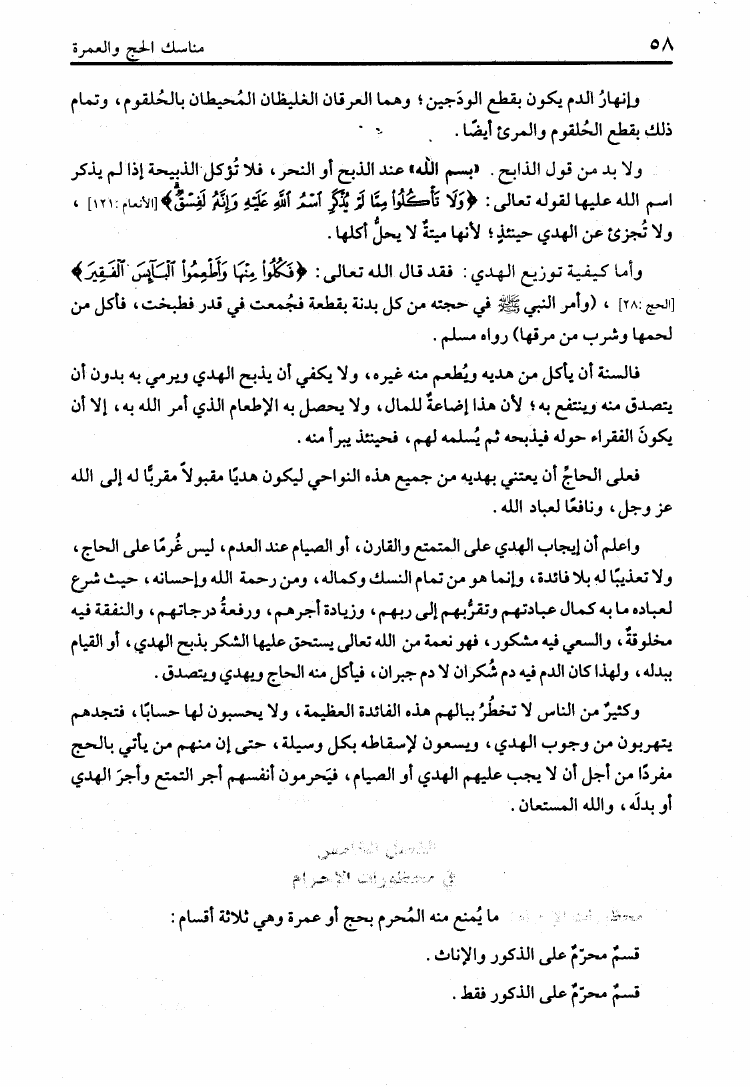 ٥٨
مناسك الحج والعمرة
وإنهارُ الدم يكون بقطع الودَجين؛ وهما العرقان الغليظان المُحيطان بالحُلقوم، وتمام
ذلك بقطع الحُلقوم والمرئ أيضًا.
ولا بد من قول الذابح. «بسم الله» عند الذبح أو النحر، فلا تُؤكل الذبيحة إذا لم يذكر
اسم الله عليها لقوله تعالى: ﴿وَلَا تَأْكُلُوا۟ مِمَّا لَمْ يُذْكَرِ ٱسْمُ ٱللَّهِ عَلَيْهِ وَإِنَّهُۥ لَفِسْقٌ﴾ [الأنعام: ١٢١]،
ولا تُجزئ عن الهدي حينئذٍ؛ لأنها ميتةٌ لا يحلُّ أكلها.
وأما كيفية توزيع الهدي: فقد قال الله تعالى: ﴿فَكُلُوا۟ مِنْهَا وَأَطْعِمُوا۟ ٱلْبَآئِسَ ٱلْفَقِيرَ﴾
[الحج: ٢٨]، (وأمر النبي ﷺ في حجته من كل بدنة بقطعة فجُمعت في قدر فطبخت، فأكل من
لحمها وشرب من مرقها) رواه مسلم.
فالسنة أن يأكل من هديه ويُطعم منه غيره، ولا يكفي أن يذبح الهدي ويرمي به بدون أن
يتصدق منه وينتفع به؛ لأن هذا إضاعةٌ للمال، ولا يحصل به الإطعام الذي أمر الله به، إلا أن
يكونَ الفقراء حوله فيذبحه ثم يُسلمه لهم، فحينئذ يبرأ منه.
فعلى الحاجِّ أن يعتني بهديه من جميع هذه النواحي ليكون هديًا مقبولاً مقربًّا له إلى الله
عز وجل، ونافعًا لعباد الله.
واعلم أن إيجاب الهدي على المتمتع والقارن، أو الصيام عند العدم، ليس غُرمًا على الحاج،
ولا تعذيبًا له بلا فائدة، وإنما هو من تمام النسك وكماله، ومن رحمة الله وإحسانه، حيث شرع
لعباده ما به كمال عبادتهم وتقرُّبهم إلى ربهم، وزيادة أجرهم، ورفعةُ درجاتهم، والنفقة فيه
مخلوفةٌ، والسعي فيه مشكور، فهو نعمة من الله تعالى يستحق عليها الشكر بذبح الهدي، أو القيام
ببدله، ولهذا كان الدم فيه دم شُكران لا دم جبران، فيأكل منه الحاج ويهدي ويتصدق.
وكثيرٌ من الناس لا تخطُرُ ببالهم هذه الفائدة العظيمة، ولا يحسبون لها حسابًا، فتجدهم
يتهربون من وجوب الهدي، ويسعون لإسقاطه بكل وسيلة، حتى إن منهم من يأتي بالحج
مفردًا من أجل أن لا يجب عليهم الهدي أو الصيام، فيَحرمون أنفسهم أجر التمتع وأجرَ الهدي
أو بدلَه، والله المستعان.
الفصل الخامس
في محظورات الإحرام
محظورات الإحرام: ما يُمنع منه المُحرم بحج أو عمرة وهي ثلاثة أقسام:
قسمٌ محرّمٌ على الذكور والإناث.
قسمٌ محرّمٌ على الذكور فقط.